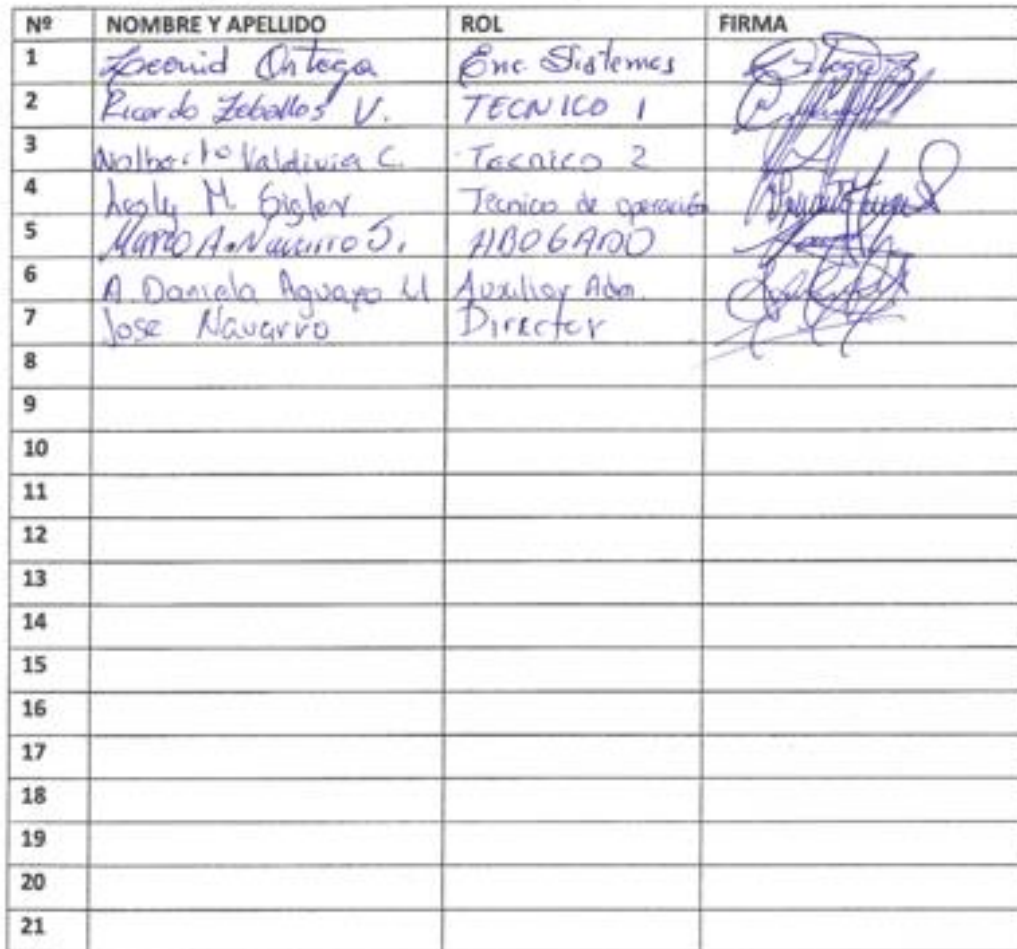 Nº NOMBRE Y APELLIDO ROL FIRMA
1 Leonid Ortega Enc. Sistemas
2 Ricardo Zeballos V. TECNICO 1
3 Nolberto Valdivia C. Tecnico 2
4 Lesly M. Técnico de operación
5 Marco A. Navarro J. ABOGADO
6 A. Daniela Aguayo U Auxiliar Adm.
7 Jose Navarro Director
8
9
10
11
12
13
14
15
16
17
18
19
20
21